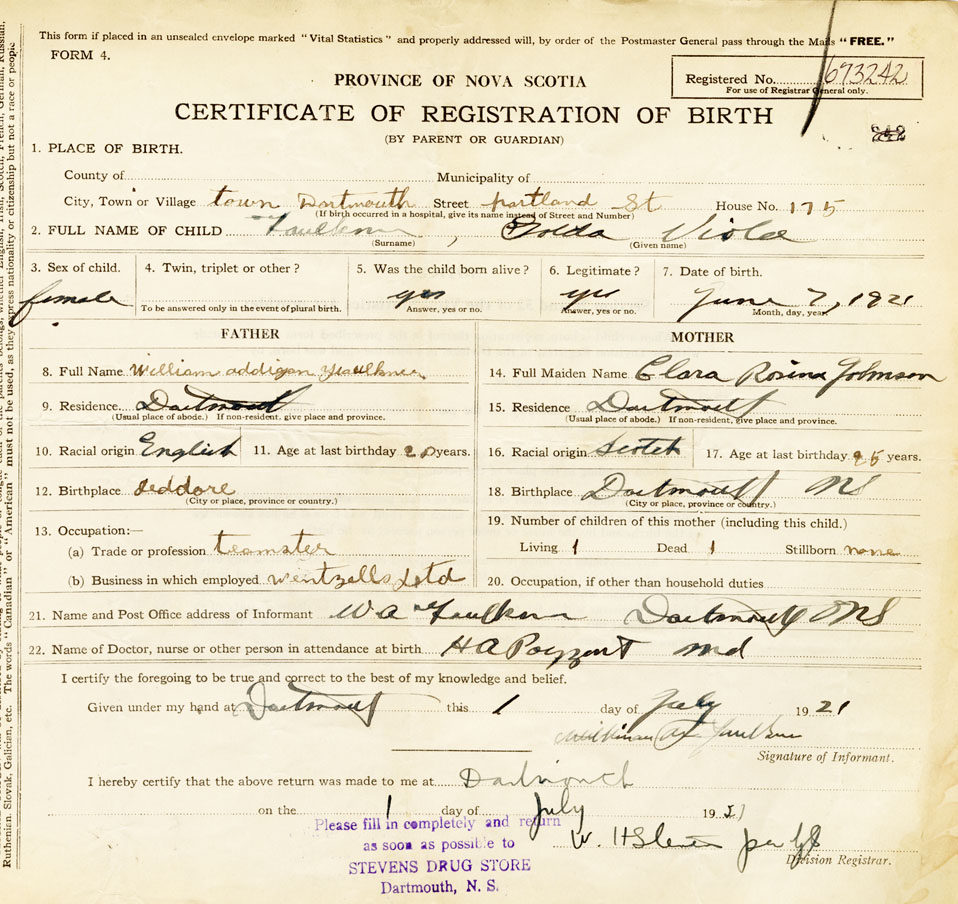 This form if placed in an unsealed envelope marked "Vital Statistics" and properly addressed will, by order of the Postmaster General pass through the Mails "FREE."
FORM 4.
PROVINCE OF NOVA SCOTIA
Registered No. 673242
For use of Registrar General only.
CERTIFICATE OF REGISTRATION OF BIRTH
(BY PARENT OR GUARDIAN)
1. PLACE OF BIRTH.
County of Municipality of
City, Town or Village town Dartmouth Street portland St House No. 175
(If birth occurred in a hospital, give its name instead of Street and Number)
2. FULL NAME OF CHILD Faulkner, Golda Viola
(Surname) (Given name)
3. Sex of child. 4. Twin, triplet or other? 5. Was the child born alive? 6. Legitimate? 7. Date of birth.
female yes yes June 7, 1921
To be answered only in the event of plural birth. Answer, yes or no. Answer, yes or no. Month, day, year,
FATHER MOTHER
8. Full Name William addigan Faulkner 14. Full Maiden Name Clara Rosina Johnson
9. Residence Dartmouth 15. Residence Dartmouth
(Usual place of abode.) If non-resident, give place and province. (Usual place of abode.) If non-resident, give place and province.
10. Racial origin English 11. Age at last birthday 20 years. 16. Racial origin Scotch 17. Age at last birthday 25 years.
12. Birthplace Jeddore 18. Birthplace Dartmouth NS
(City or place, province or country.) (City or place, province or country.)
13. Occupation:— 19. Number of children of this mother (including this child.)
(a) Trade or profession teamster Living 1 Dead 1 Stillborn none
(b) Business in which employed Wentzells Ltd 20. Occupation, if other than household duties
21. Name and Post Office address of Informant W A Faulkner Dartmouth NS
22. Name of Doctor, nurse or other person in attendance at birth H A Payzant md
I certify the foregoing to be true and correct to the best of my knowledge and belief.
Given under my hand at Dartmouth this 1 day of July 1921
William A Faulkner
Signature of Informant.
I hereby certify that the above return was made to me at Dartmouth
on the 1 day of July 1921
Please fill in completely and return
as soon as possible to
STEVENS DRUG STORE
Dartmouth, N. S.
W. H Stevens per
Division Registrar.